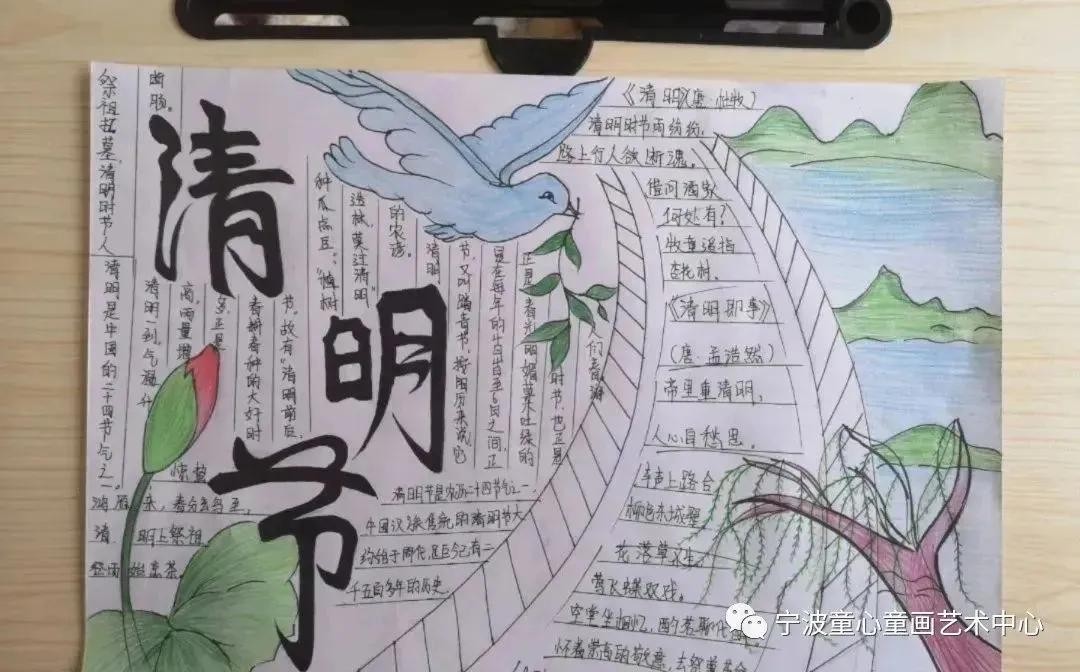 清
明
节
祭祖扫墓，清明时节人
断肠。
清明是中国的二十四节气之一。
清明一到，气温升
高，雨量增
多，正是
春耕春种的大好时
节。故有“清明前后，
种瓜点豆”。“植树
造林，莫过清明”
的农谚。
清明
节，又叫踏青节，按阳历来说，它
是在每年的4月4日至6日之间，正
正是春光明媚草木吐绿的
时节，也正是
们春游
惊蛰
雁来，春分玄鸟至，
清明上祭祖
清明节是农历二十四节气之一
中国汉族传统的清明节大
约始于周代，距今已有二
千五百多年的历史
《清明》（唐·杜牧）
清明时节雨纷纷，
路上行人欲断魂。
借问酒家
何处有？
牧童遥指
杏花村。
《清明即事》
（唐·孟浩然）
帝里重清明，
人心自愁思。
车声上路合
柳色东城翠
花落草木生，
莺飞蝶双戏。
空堂坐相忆，酌茗聊代
怀着崇高的敬意，去祭
宁波童心童画艺术中心